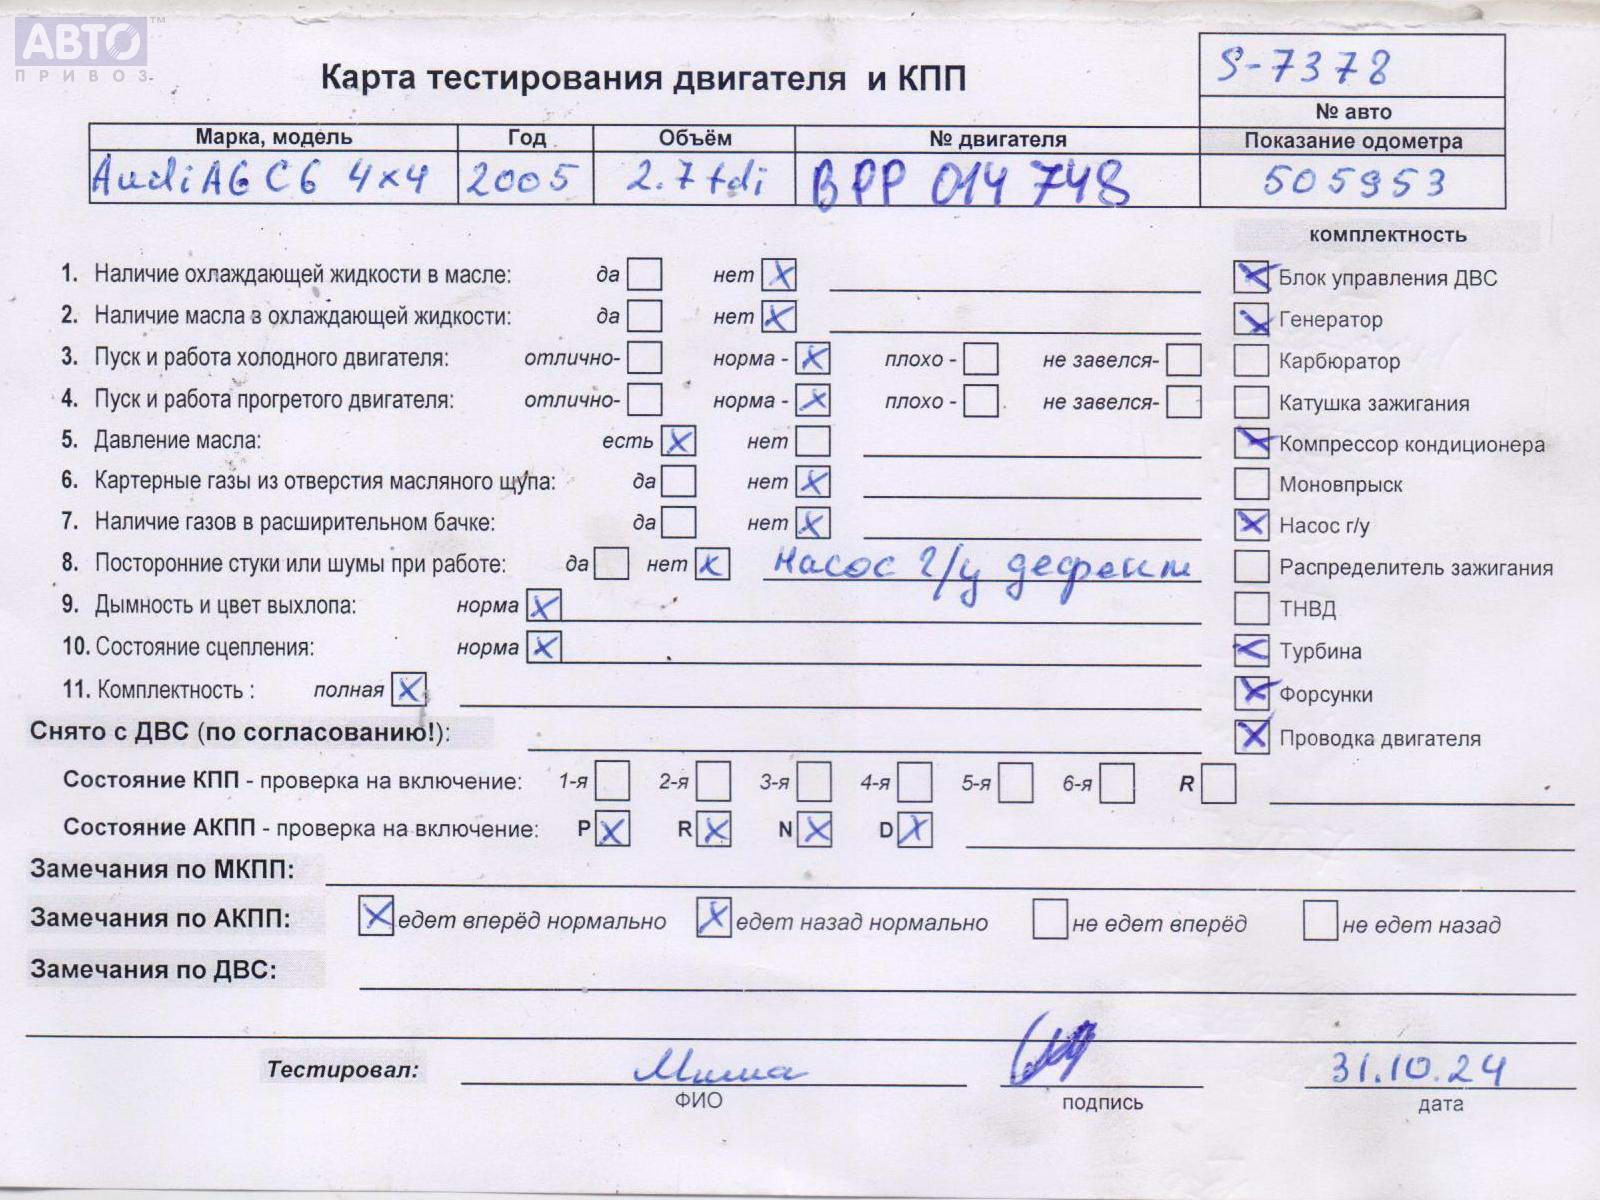 АВТО™
ПРИВОЗ
S-7378
Карта тестирования двигателя и КПП
№ авто
Марка, модель Год Объём № двигателя Показание одометра
Audi A6 C6 4x4 2005 2.7 tdi BPP 014 748 505953
комплектность
1. Наличие охлаждающей жидкости в масле: да нет X Блок управления ДВС
2. Наличие масла в охлаждающей жидкости: да нет X Генератор
3. Пуск и работа холодного двигателя: отлично- норма - X плохо - не завелся- Карбюратор
4. Пуск и работа прогретого двигателя: отлично- норма - X плохо - не завелся- Катушка зажигания
5. Давление масла: есть X нет X Компрессор кондиционера
6. Картерные газы из отверстия масляного щупа: да нет X Моновпрыск
7. Наличие газов в расширительном бачке: да нет X X Насос г/у
8. Посторонние стуки или шумы при работе: да нет X Насос г/у дефект Распределитель зажигания
9. Дымность и цвет выхлопа: норма X ТНВД
10. Состояние сцепления: норма X X Турбина
11. Комплектность : полная X X Форсунки
Снято с ДВС (по согласованию!): X Проводка двигателя
Состояние КПП - проверка на включение: 1-я 2-я 3-я 4-я 5-я 6-я R
Состояние АКПП - проверка на включение: P X R X N X D X
Замечания по МКПП:
Замечания по АКПП: X едет вперёд нормально X едет назад нормально не едет вперёд не едет назад
Замечания по ДВС:
Тестировал: Миша 31.10.24
ФИО подпись дата